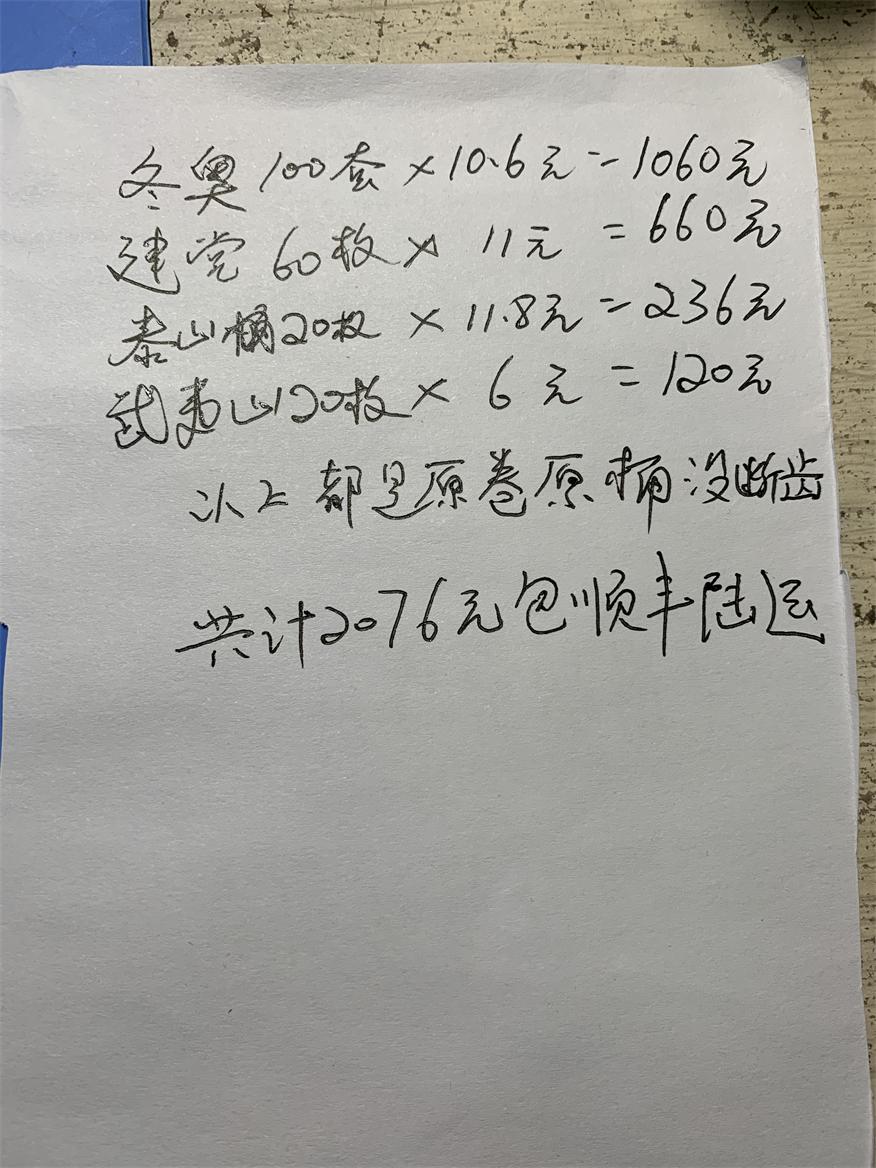 冬奥100套×10.6元=1060元
建党60枚×11元=660元
泰山桶20枚×11.8元=236元
武夷山120枚×6元=120元
以上都是原卷原桶没断齿
共计2076元包顺丰陆运